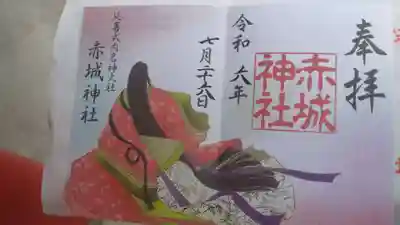 奉拝
赤城
神社
令和六年
七月二十六日
延喜式内名神大社
赤城神社